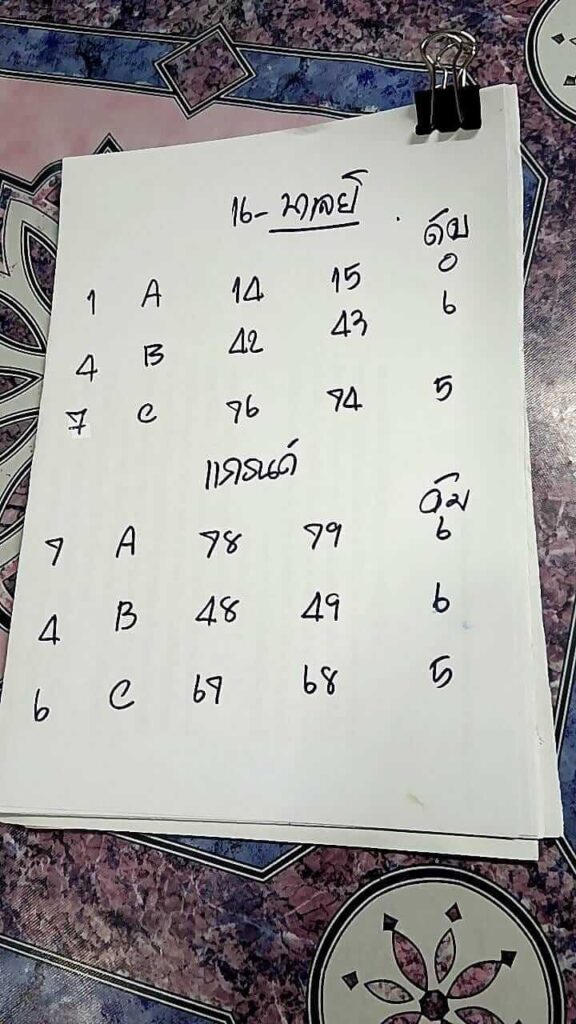 16- มาเลย์ ดับ
1 A 14 15 0
4 B 42 43 6
7 C 76 74 5
แกรนด์ ดับ
7 A 78 79 6
4 B 48 49 6
6 C 67 68 5